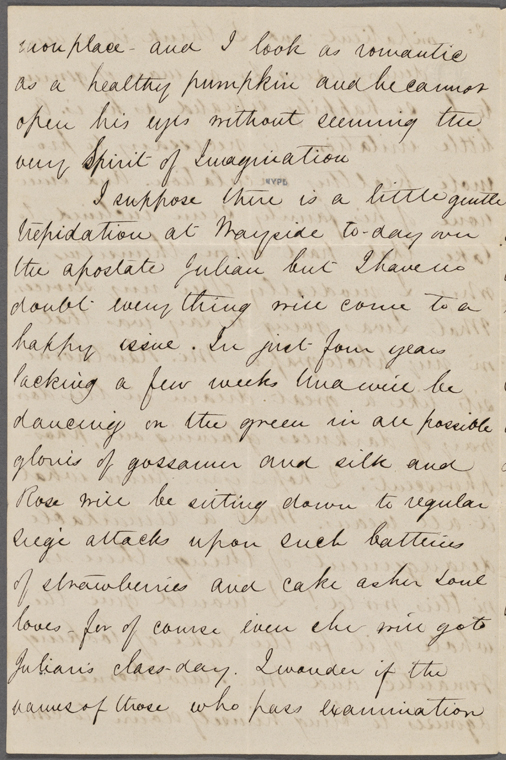 mon place - and I look as romantic
as a healthy pumpkin and he cannot
open his eyes without seeming the
very Spirit of Imagination
NYPL
I suppose there is a little gentle
trepidation at Wayside to-day over
the apostate Julian but I have no
doubt everything will come to a
happy issue. In just four years
lacking a few weeks Una will be
dancing on the green in all possible
glories of gossamer and silk and
Rose will be sitting down to regular
siege attacks upon such batteries
of strawberries and cake as her soul
loves for of course even she will go to
Julian's class-day. I wonder if the
names of those who pass examination